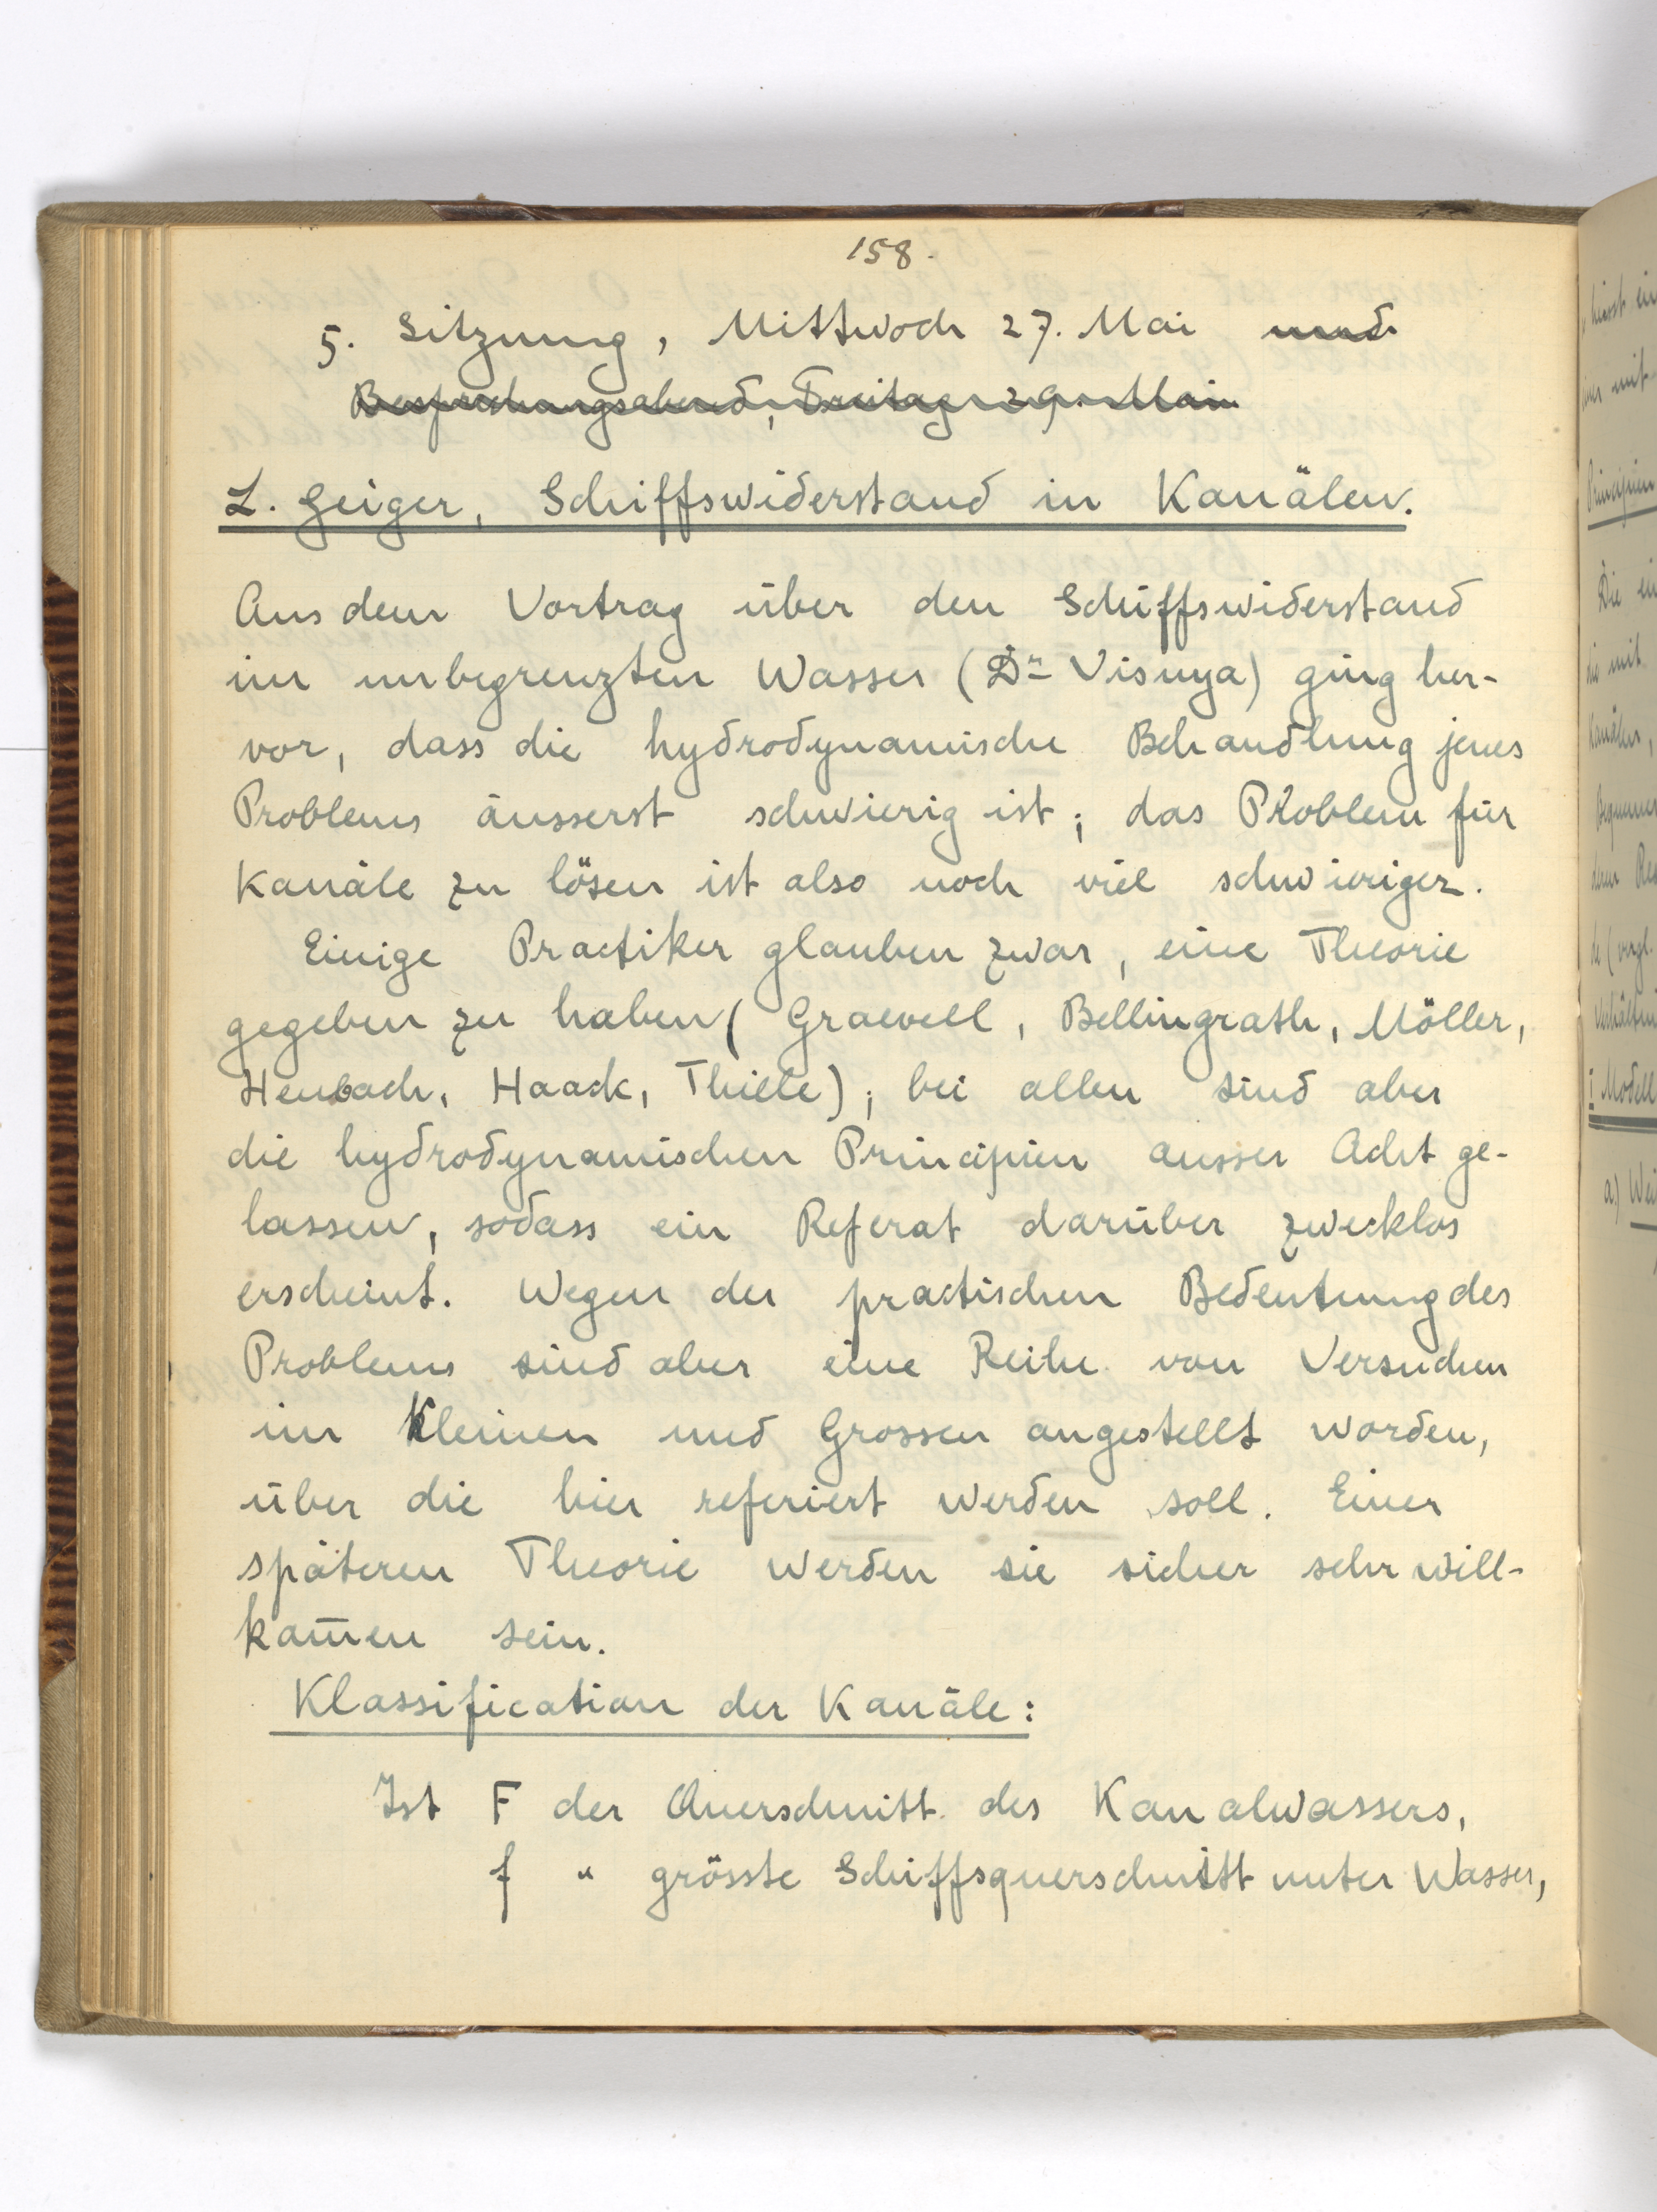 158.
5. Sitzung, Mittwoch 27. Mai und
Besprechungsabend, Freitag 29. Mai
L. Geiger, Schiffswiderstand in Kanälen.
Aus dem Vortrag über den Schiffswiderstand
im unbegrenzten Wasser (Dr Visnya) ging her-
vor, dass die hydrodynamische Behandlung jenes
Problems äusserst schwierig ist; das Problem für
Kanäle zu lösen ist also noch viel schwieriger.
Einige Practiker glauben zwar, eine Theorie
gegeben zu haben (Graevell, Bellingrath, Möller,
Heubach, Haack, Thiele); bei allen sind aber
die hydrodynamischen Principien ausser Acht ge-
lassen, sodass ein Referat darüber zwecklos
erscheint. Wegen der practischen Bedeutung des
Problems sind aber eine Reihe von Versuchen
im Kleinen und Grossen angestellt worden,
über die hier referiert werden soll. Einer
späteren Theorie werden sie sicher sehr will-
kom̅en sein.
Klassification der Kanäle:
Ist F der Querschnitt des Kanalwassers,
f " grösste Schiffsquerschnitt unter Wasser,
Principien
Die
die mit
Kanälen,
(vergl.
I Modell
a.)